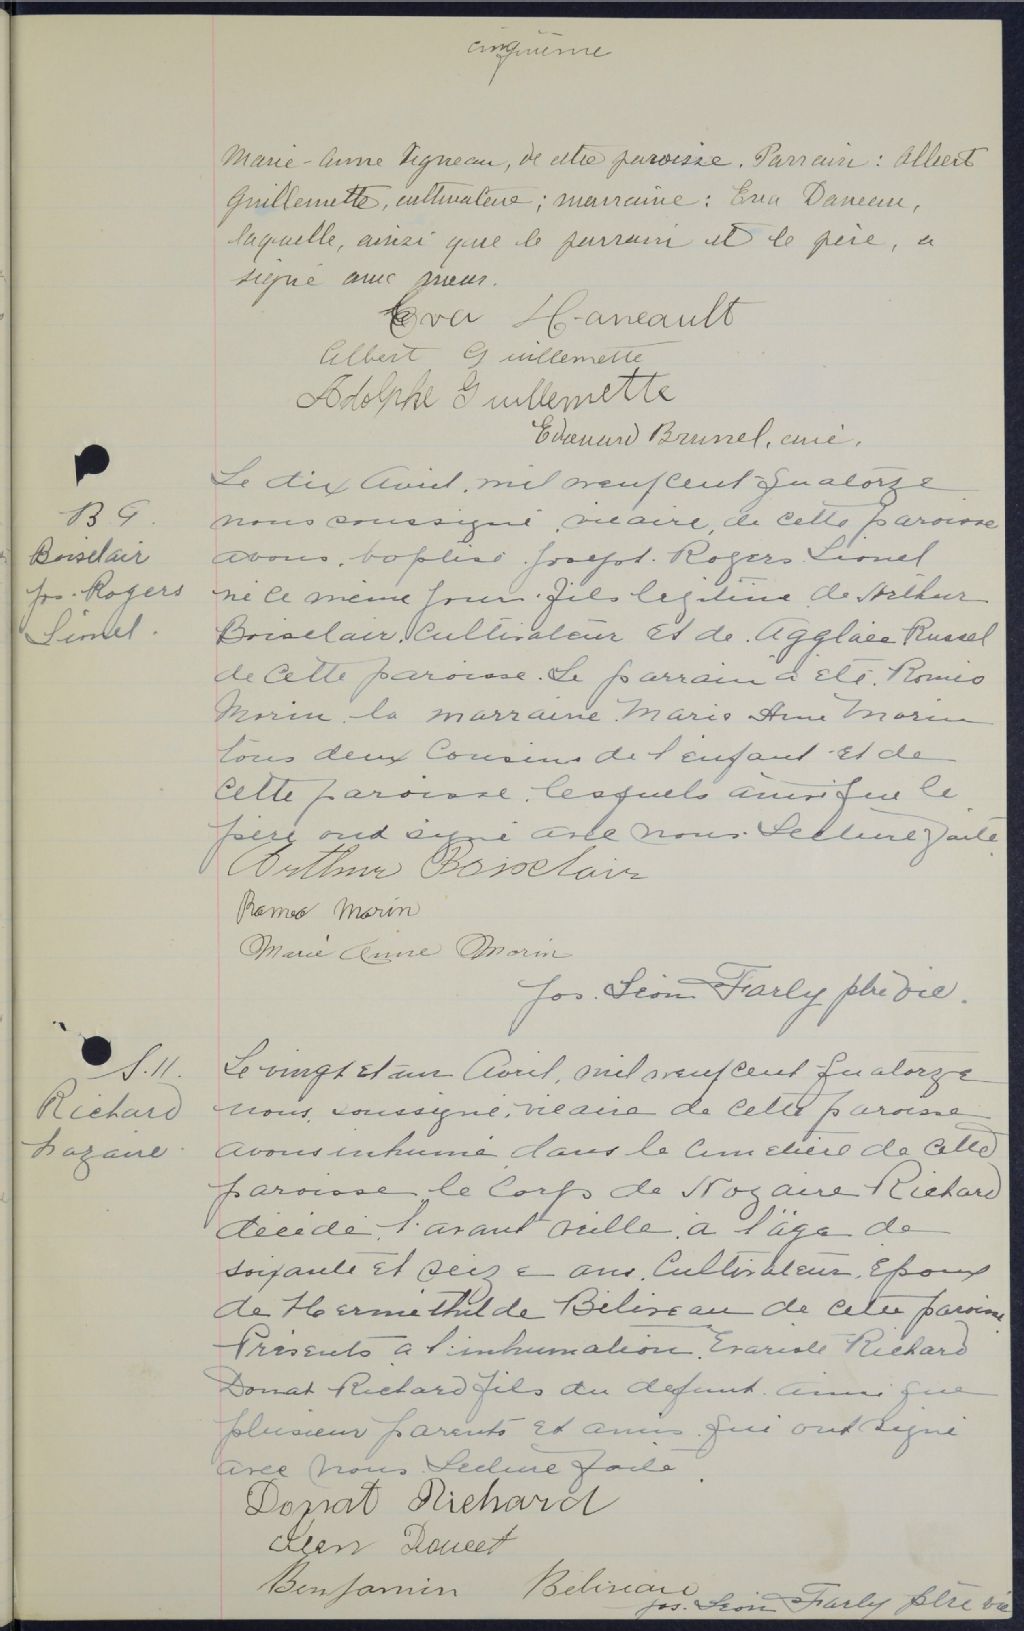 cinquième
Marie-Anne Vigneau, de cette paroisse. Parrain: Albert
Guillemette, cultivateur; marraine: Eva Daneau,
laquelle, ainsi que le parrain et le père, a
signé avec nous.
Eva Haneault
Albert Guillemette
Adolphe Guillemette
Edouard Brunel, curé.
B 9.
Boisclair
Jos. Rogers
Lionel.
Le dix Avril, mil neuf cent quatorze
nous soussigné, vicaire, de cette paroisse
avons, baptisé Joseph. Rogers Lionel
né ce même jour. fils légitime de Arthur
Boisclair. Cultivateur et de. Agglaée Russel
de cette paroisse. Le parrain a été. Roméo
Morin. la marraine Marie Anne Morin
tous deux Cousins de l'enfant et de
cette paroisse. lesquels ainsi que le
père ont signé avec nous. Lecture faite
Arthur Boisclair
Romeo Morin
Marie Anne Morin
Jos. Léon Farly ptre vic.
S. 11.
Richard
Nazaire.
Le vingt et un Avril, mil neuf cent quatorze
nous, soussigné, vicaire de cette paroisse
avons inhumé, dans le cimetière de cette
paroisse le Corps de Nozaire Richard
décédé, l'avant veille, à l'âge de
soixante et seize ans, Cultivateur, Epoux
de Herméthilde Béliveau de cette paroisse.
Présents à l'inhumation, Evariste Richard
Donat Richard fils du defunt. ainsi que
plusieur parents et amis. qui ont signé
avec nous. Lecture faite.
Donat Richard
Doucet
Benjamin Béliveau
Jos. Léon Farly ptre vic